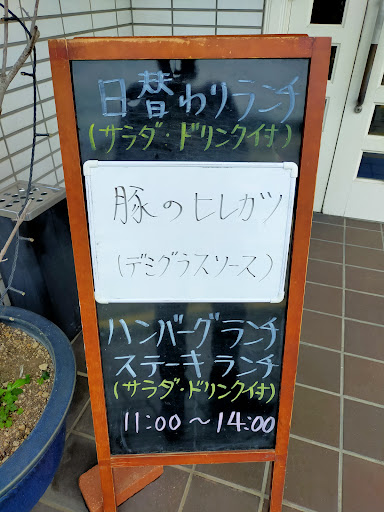 日替わりランチ
(サラダ・ドリンク付)
豚のヒレカツ
(デミグラスソース)
ハンバーグランチ
ステーキランチ
(サラダ・ドリンク付)
11:00～14:00